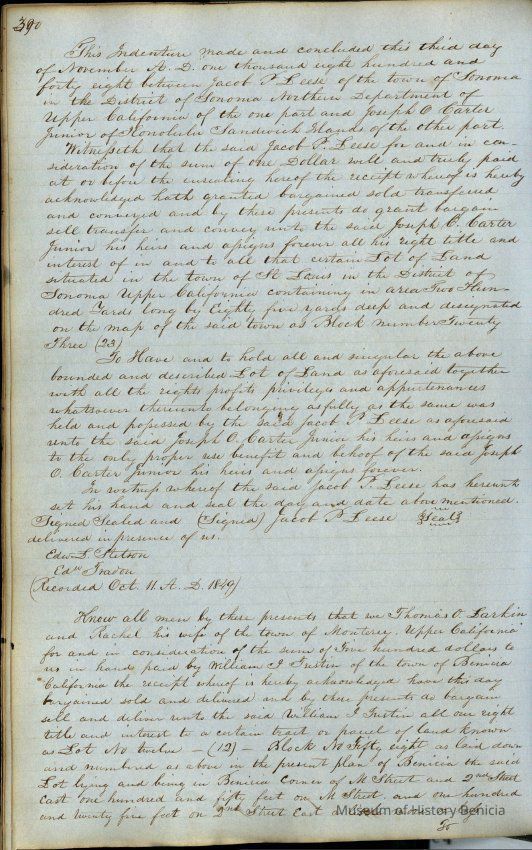 390
This Indenture made and concluded this third day
of November A. D. one thousand eight hundred and
forty eight between Jacob P. Leese of the town of Sonoma
in the District of Sonoma Northern Department of
Upper California of the one part and Joseph O. Carter
Junior of Honolulu Sandwich Islands of the other part.
Witnesseth that the said Jacob P. Leese for and in con-
sideration of the sum of one Dollar well and truly paid
at or before the ensealing hereof the receipt whereof is hereby
acknowledged hath granted bargained sold transferred
and conveyed and by these presents do grant bargain
sell transfer and convey unto the said Joseph O. Carter
Junior his heirs and assigns forever all his right title and
interest of in and to all that certain Lot of Land
situated in the town of St Louis in the District of
Sonoma Upper California containing in area Two Hun-
dred Yards long by Eighty five yards deep and designated
on the map of the said town as Block number Twenty
Three (23)
To Have and to hold all and singular the above
bounded and described Lot of Land as aforesaid together
with all the rights profits privileges and appurtenances
whatsoever thereunto belonging as fully as the same was
held and possessed by the said Jacob P. Leese as aforesaid
unto the said Joseph O. Carter Junior his heirs and assigns
to the only proper use benefit and behoof of the said Joseph
O. Carter Junior his heirs and assigns forever.
In witness whereof the said Jacob P. Leese has hereunto
set his hand and seal the day and date above mentioned.
Signed Sealed and (Signed) Jacob P Leese Seal
delivered in presence of us.
Edw. L. Stetson
Edw
(Recorded Oct. 11. A. D. 1849)
Know all men by these presents that we Thomas O. Larkin
and Rachel his wife of the town of Monterey, Upper California
for and in consideration of the sum of Five hundred dollars to
us in hand paid by William I Tustin of the town of Benicia
California the receipt whereof is hereby acknowledged have this day
bargained sold and delivered and by these presents do bargain
sell and deliver unto the said William I Tustin all our right
title and interest to a certain tract or parcel of land known
as Lot No twelve - (12) - Block No Fifty eight as laid down
and numbered as above in the present plan of Benicia the said
Lot lying and being in Benicia Corner of M Street and 2nd Street
East one hundred and fifty feet on M Street, and one hundred
and twenty five feet on 2nd Street East
Museum of History Benicia